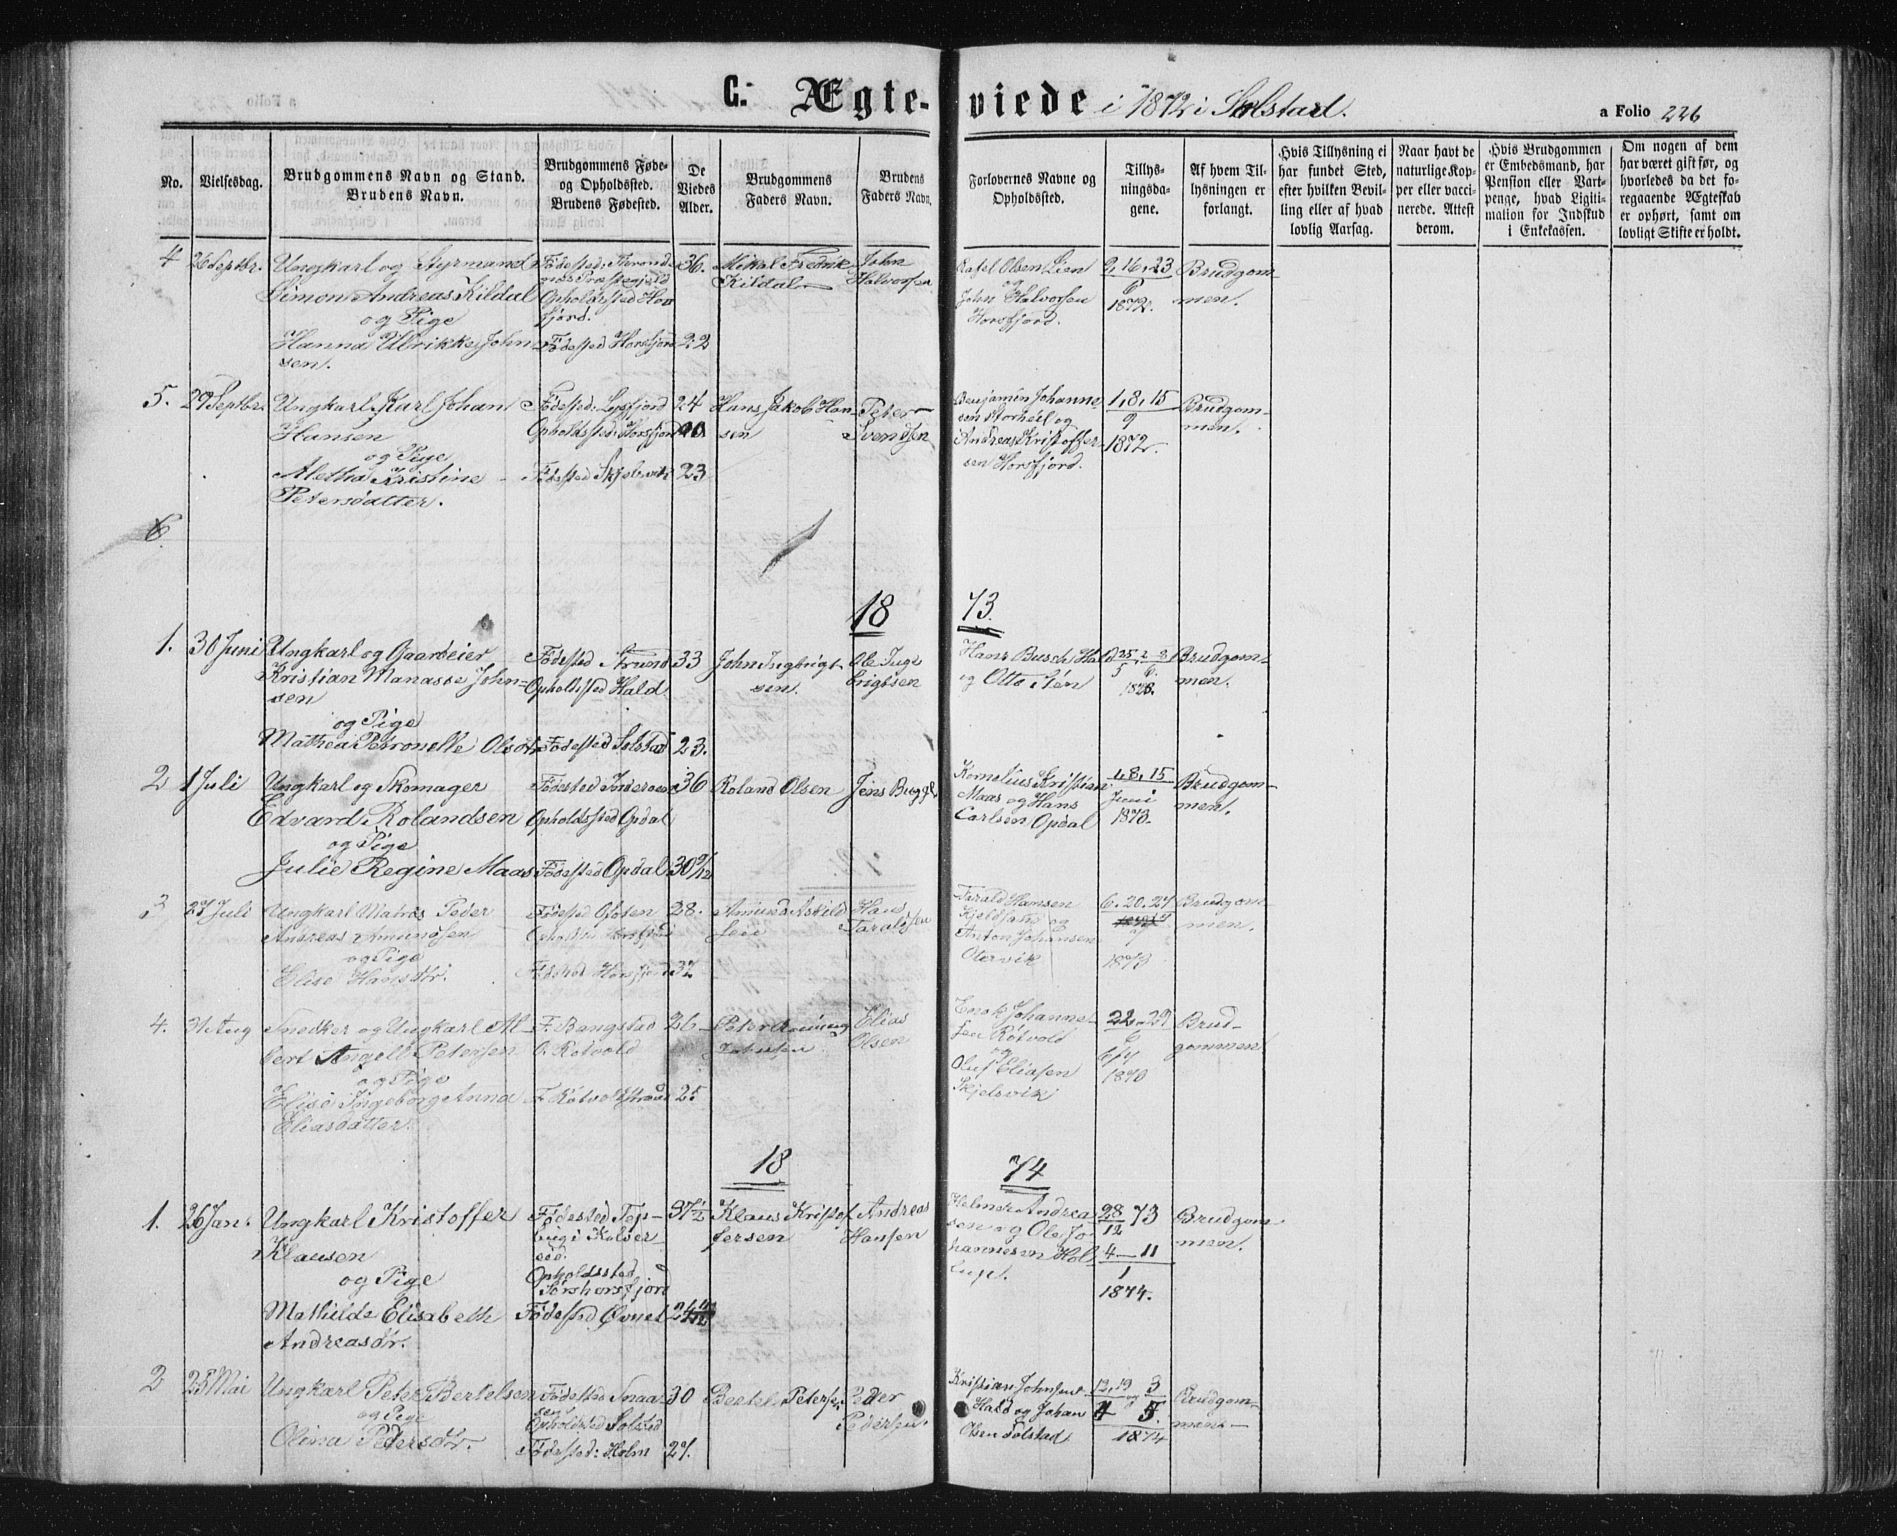 C. Ægte-viede i 1872 i Solstad.
a Folio 226
No.
Vielsesdag.
Brudgommens Navn og Stand.
Brudens Navn.
Brudgommens Føde-
og Opholdsted.
Brudens Fødested.
De
Viedes
Alder.
Brudgommens
Faders Navn.
Brudens
Faders Navn.
Forlovernes Navne og
Opholdssted.
Tillys-
ningsda-
gene.
Af hvem Til-
lysningen er
forlangt.
Hvis Tillysning ei
har fundet Sted,
efter hvilken Bevil-
ling eller af hvad
lovlig Aarsag.
Naar havt de
naturlige Kop-
per eller vacci-
nerede. Attest
derom.
Hvis Brudgommen
er Embedsmand, har
Pension eller Vart-
penge, hvad Ligiti-
mation for Indskud
i Enkekassen.
Om nogen af dem
har været gift før, og
hvorledes da det fo-
regaaende Ægteskab
er ophørt, samt om
lovligt Skifte er holdt.
4 26 Septbr. Ungkarl og Styrmand
Simon Andreas Kildal
og Pige
Hanna Ulrikke John-
sen.
Opholdssted Hors-
fjord.
Fødested Horsfjord
36.
22
Mikal Fredrik
Kildal
John
Halvorsen
Rafel Olsen Lien
og
John Halvorsen
Horsfjord.
9, 16, 23
6
1872.
Brudgom-
men.
5. 29 Septbr. Ungkarl Karl Johan
Hansen
og Pige
Aletha Kristine
Petersdatter.
Fødested: Lysfjord
Opholdssted: Horsfjord
Fødested Skjelsvik
24
23
Hans Jakob Han-
sen
Peter
Svendsen
Benjamin Johanne-
sen Storheil og
Andreas Kristoffer-
sen Horsfjord.
1, 8, 15
9
1872.
Brudgom-
men.
6.
18 73.
1. 30 Juni Ungkarl og Gaardeier
Kristian Manasse John-
sen
og Pige
Mathea Petronelle Olsdtr
Fødested Strand
Opholdssted Hald
Fødested Solstad
33
23.
John Ingbrigt-
sen.
Ole Inge-
brigtsen
Hans Busch Hald
og Otto
25, 2 8
5 6.
Brudgom-
men.
2 1 Juli Ungkarl og Skomager
Edvard Rolandsen
og Pige
Julie Regine Maas
Fødested Inderøen
Opholdssted Opdal
Fødested Opdal
36
30 9/12
Roland Olsen
Jens Bugge
Kornelius Kristian
Maas og Hans
Carlsen Opdal
1, 8, 15
Juni
1873.
Brudgom-
men.
3 27 Juli Ungkarl Matros Peder
Andreas Amundsen
og Pige
Elise Hansdtr.
Fødested Horsfjord
28.
32
Amund Askild-
Hans
Taraldsen
Tarald Hansen
og
Anton Johansen
Olervik
6. 20. 27
7
1873
Brudgom-
men.
4. 31 Aug Snedker og Ungkarl Al-
bert Angell Petersen
og Pige
Elise Ingeborg Anna
Eliasdatter.
F. Bangstad
O. Røtvold
26
25
Elias
Olsen
Enok Johanne-
sen Røtvold
og
Oluf Eliasen
Skjelsvik
22. 29
6
6/7
1873
Brud-
gommen
18 74
1. 26 Jan. Ungkarl Kristoffer
Klausen
og Pige
Mathilde Elisabeth
Andreasdtr.
Opholdssted
Sørhorsfjord
Fødested Øvnet
37 1/2
Klaus Kristof-
fersen
Andreas
Hansen
Helmer Andrea-
sen og Ole Jo-
hannesen Hol-
28 73
12
4—11
1
1874.
Brudgom-
men.
2 25 Mai Ungkarl Peter Bertelsen
og Pige
Olina Petersdtr.
Fødested Snaa-
sen
Opholdssted Solstad
Fødested: Holm
30
27.
Bertel Petersen
Peder
Pedersen.
Kristian Johnsen
Hald og Johan
Olsen Solstad
12, 19 og 3
4 5
1874
Brudgom-
men